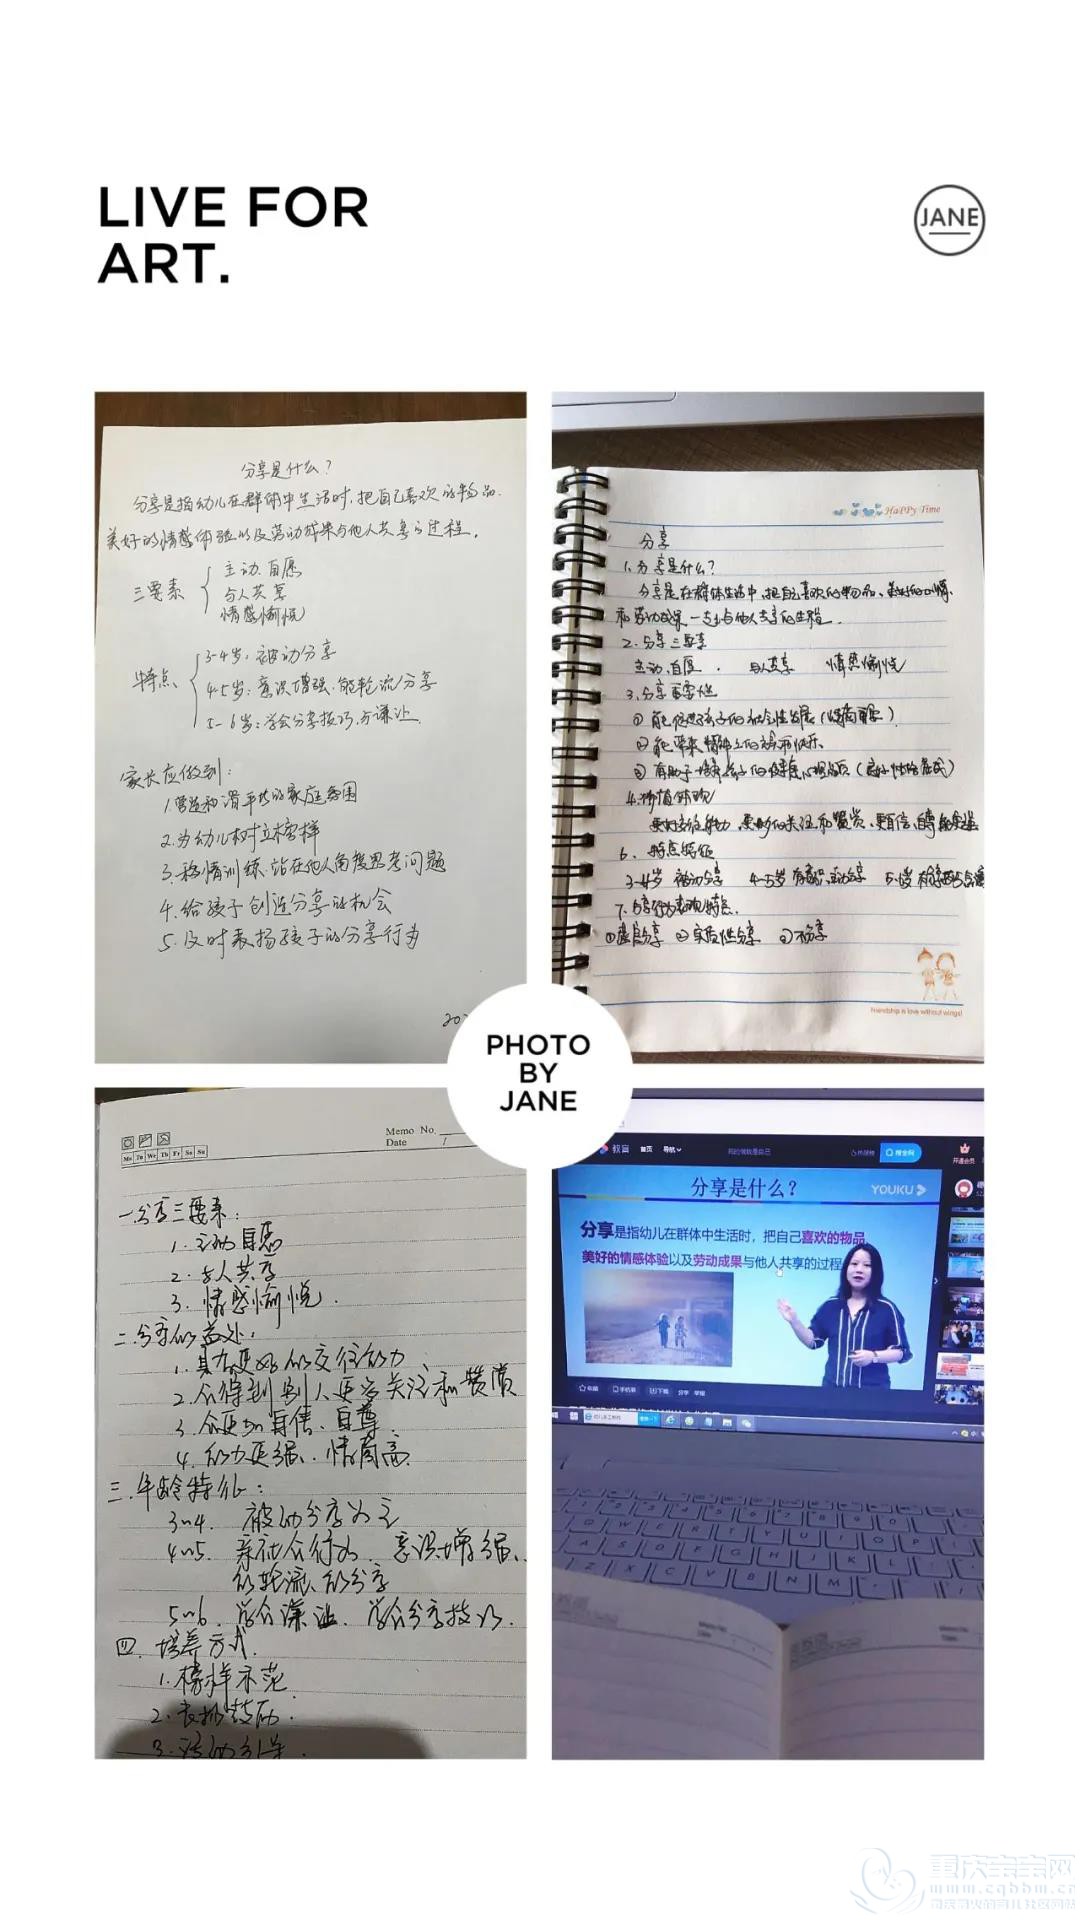 LIVE FOR
ART.
JANE
分享是什么?
分享是指幼儿在群体中生活时,把自己喜欢的物品.
美好的情感体验以及劳动成果与他人共享的过程。
三要素
主动.自愿
与人共享
情感愉悦
特点
3-4岁:被动分享
4-5岁:意识增强.能轮流/分享
5-6岁:学会分享技巧,方谦让
家长应做到:
1.营造和谐平共的家庭氛围
2.为幼儿树立榜样
3.移情训练.站在他人角度思考问题
4.给孩子创造分享的机会
5.及时表扬孩子的分享行为
HaPPy Time
分享
1.分享是什么?
分享是在群体生活中,把自己喜欢的物品、
和劳动成果一起与他人共享的过程.
2.分享三要素
主动.自愿. 与人共享 情感愉悦
3.分享重要性
①能促进孩子的社会性发展(情商重要)
②能带来精神上的满足和快乐.
③有助于培养孩子的健康心理品质
4.价值体现
更好的交往能力,更多的关注和赞赏,更自信、自尊
6.特点特征
3-4岁 被动分享 4-5岁 有意识.主动分享 5-6岁
7.分享行为表现特点.
①虚假分享 ②实质性分享 ③不分享
Friendship is love without wings!
PHOTO
BY
JANE
Memo No.
Date /
Mo Tu We Th Fr Sa Su
一.分享三要素:
1.主动自愿
2.与人共享
3.情感愉悦.
二.分享的益处.
1.具有更好的交往能力
2.会得到别人更多关注和赞赏
3.会更加自信、自尊
4.能力更强、情商高
三.年龄特征:
3~4. 被动分享为主
4~5. 亲社会行为、意识增强、
能轮流、能分享
5~6. 学会谦让、学会分享技巧.
四.培养方式.
1.榜样示范
2.表扬鼓励.
3.活动引导.
教育 首页 导航
搜全网
分享是什么?
YOUKU
分享是指幼儿在群体中生活时,把自己喜欢的物品
美好的情感体验以及劳动成果与他人共享的过程
收藏 手机看 下载 分享 举报
重庆宝宝网
www.cqbbm.cn